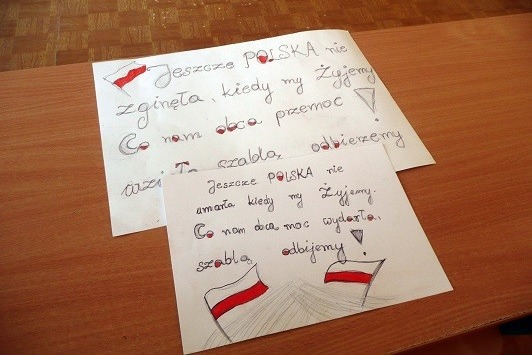 Jeszcze POLSKA nie
zginęła, kiedy my Żyjemy
Co nam obca przemoc !
szablą odbierzemy
Jeszcze POLSKA nie
umarła kiedy my Żyjemy.
Co nam obca moc wydarła,
szablą odbijemy !